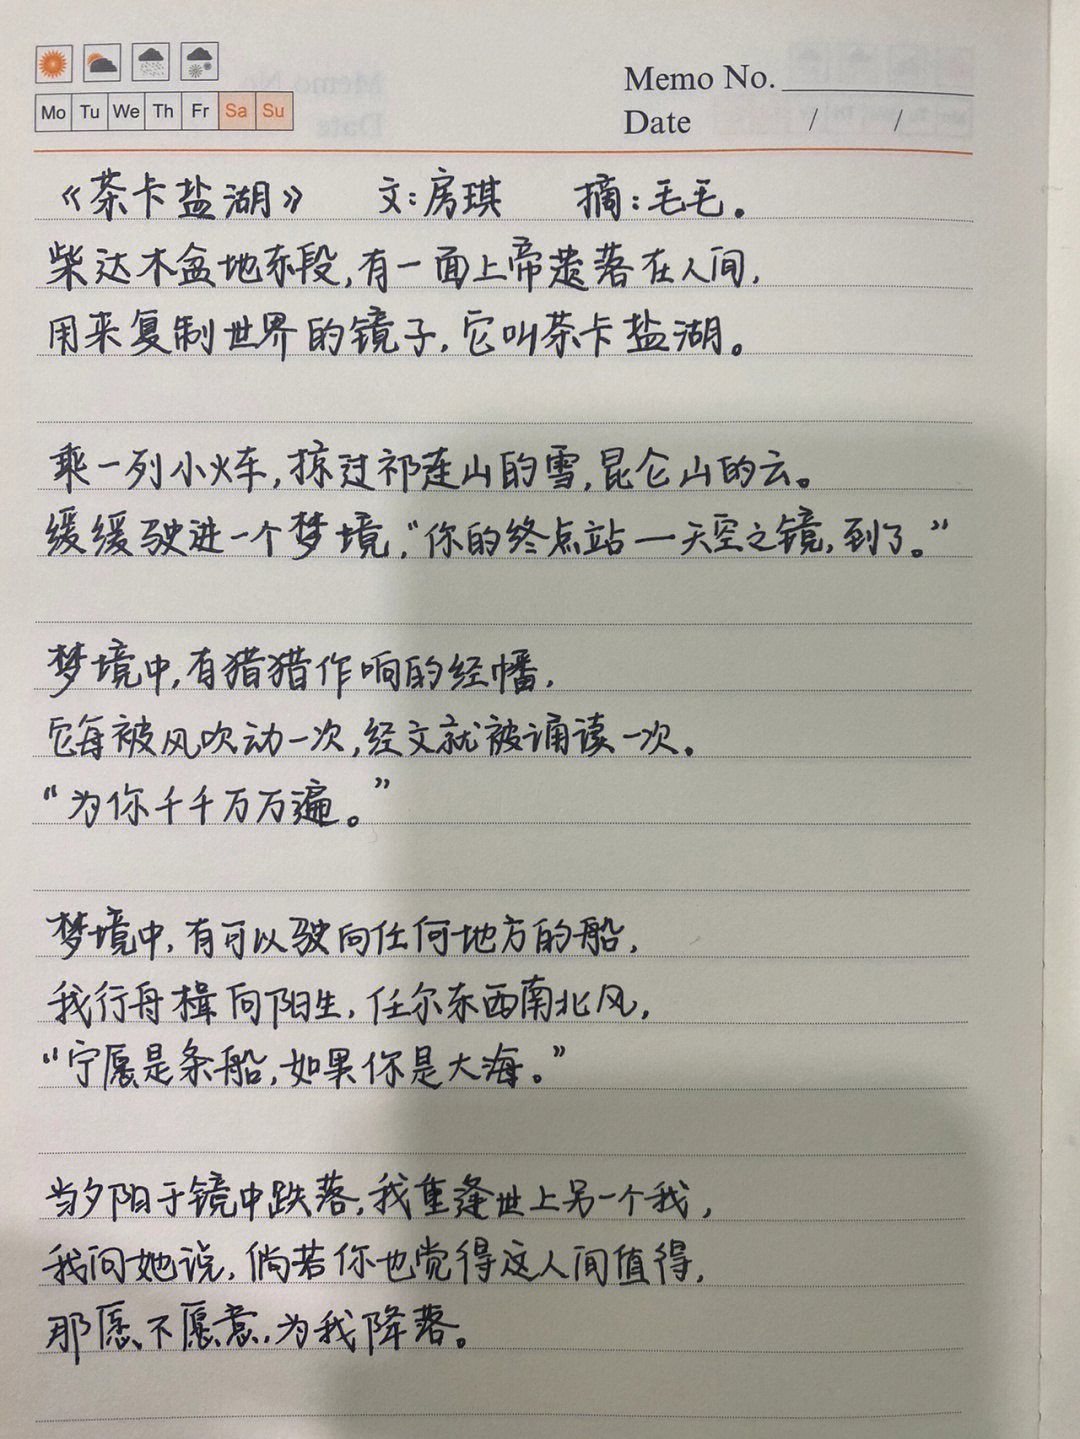 Mo Tu We Th Fr Sa Su
Memo No.
Date / /
《茶卡盐湖》 文:房琪 摘:毛毛。
柴达木盆地东段,有一面上帝遗落在人间,
用来复制世界的镜子,它叫茶卡盐湖。
乘一列小火车,掠过祁连山的雪,昆仑山的云。
缓缓驶进一个梦境,“你的终点站一天空之镜,到了。”
梦境中,有猎猎作响的经幡,
它每被风吹动一次,经文就被诵读一次。
“为你千千万万遍。”
梦境中,有可以驶向任何地方的船,
我行舟楫向阳生,任尔东西南北风,
“宁愿是条船,如果你是大海。”
当夕阳于镜中跌落,我重逢世上另一个我,
我问她说,倘若你也觉得这人间值得,
那愿不愿意,为我降落。